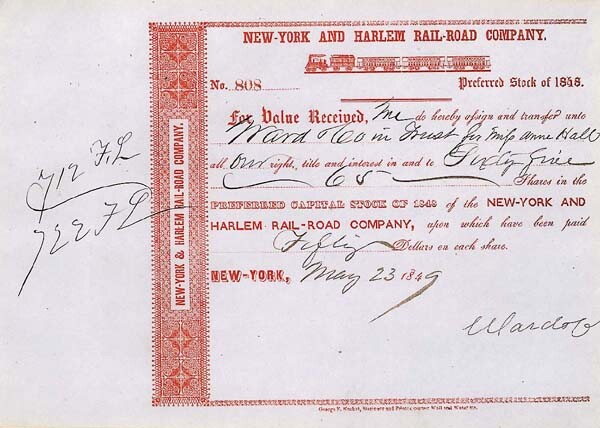 NEW-YORK AND HARLEM RAIL-ROAD COMPANY.
No. 808 Preferred Stock of 1848.
For Value Received, We do hereby assign and transfer unto
Ward & Co in Trust for Miss Anne Hall
all Our right, title and interest in and to Sixty five
65 Shares in the
PREFERRED CAPITAL STOCK OF 1848 of the NEW-YORK AND
HARLEM RAIL-ROAD COMPANY, upon which have been paid
Fifty Dollars on each share.
NEW-YORK, May 23 1849
Ward & Co
NEW-YORK & HARLEM RAIL-ROAD COMPANY.
712 F.L
722 F L
Stationer and Printer, corner Wall and Water Sts.